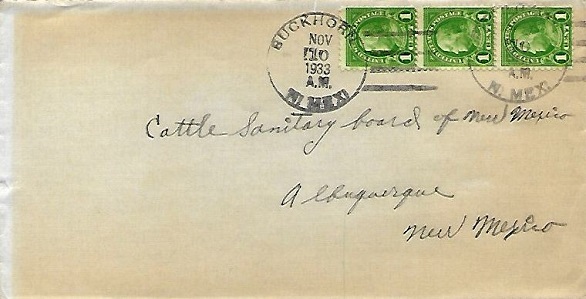 BUCKHORN
NOV
10
1933
A.M.
N. MEX.
1 1 1
A.M.
N. MEX.
Cattle Sanitary board of New Mexico
Albuquerque
New Mexico